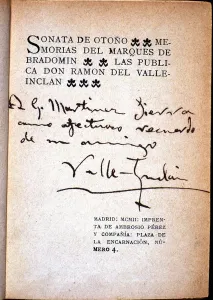 SONATA DE OTOÑO ME-
MORIAS DEL MARQUES DE
BRADOMIN LAS PUBLI-
CA DON RAMON DEL VALLE-
INCLAN
A G. Martínez Sierra
como afectuoso recuerdo
de su amigo
Valle-Inclán
MADRID: MCMII: IMPREN-
TA DE AMBROSIO PÉREZ
Y COMPAÑÍA: PLAZA DE
LA ENCARNACIÓN, NÚ-
MERO 4.